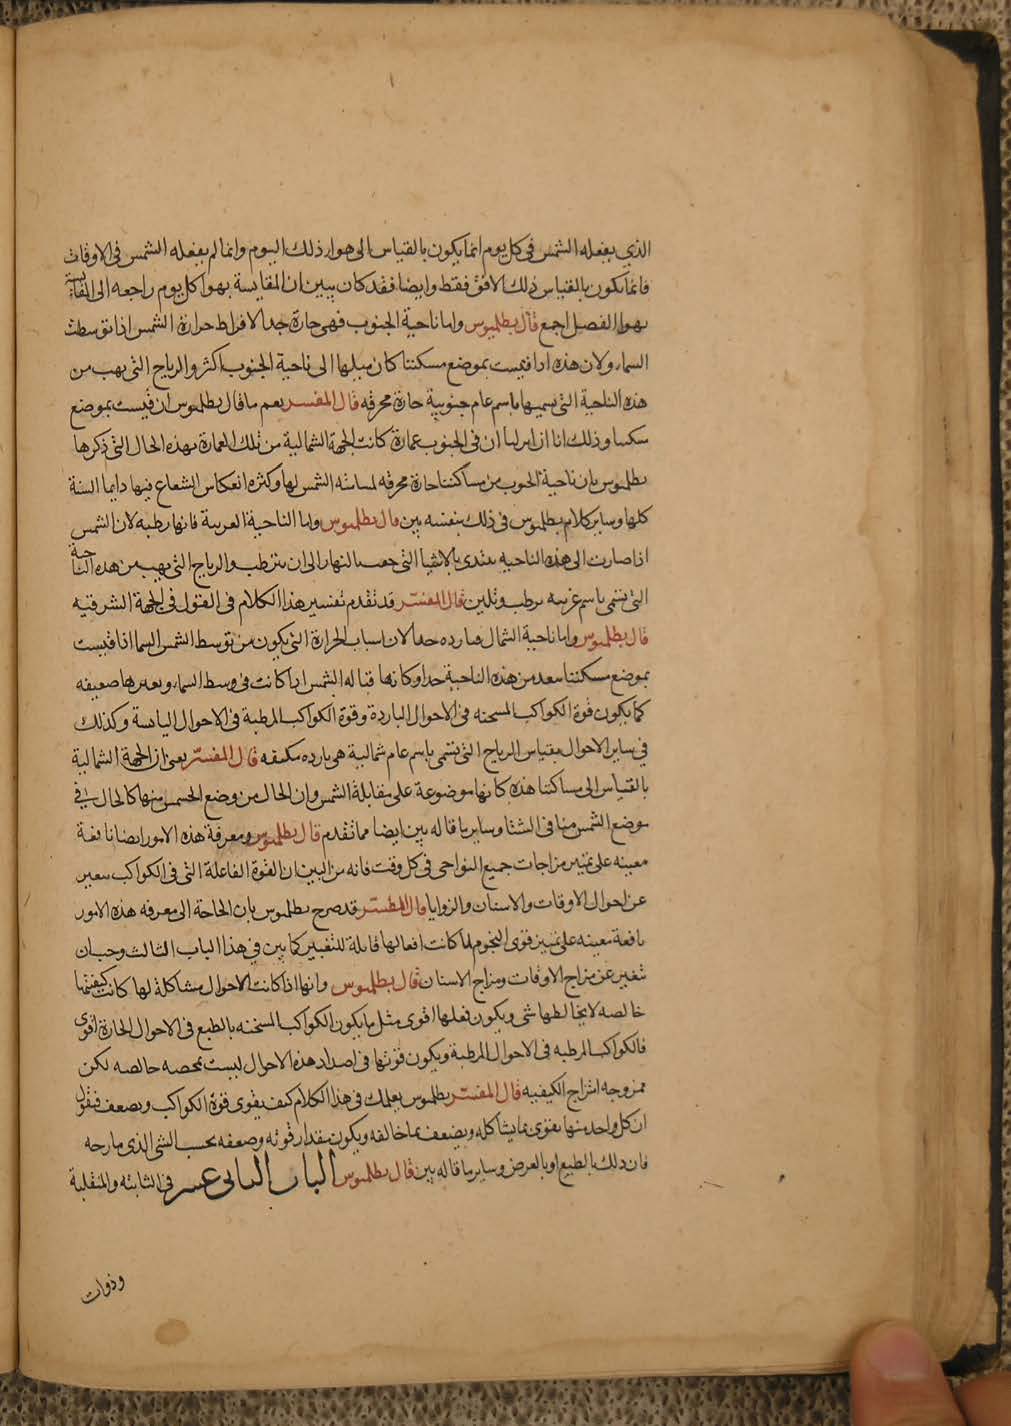 الذي يفعله الشمس في كل يوم انما يكون بالقياس الى هواء ذلك اليوم وانما لم يفعله الشمس في الاوقات
فانما يكون بالقياس ذلك الافق فقط وايضا فقد كان يبين ان المقايسة بهواء كل يوم راجعه الى المقايسة
بهواء الفصل اجمع قال بطلميوس واما ناحية الجنوب فهي حارة جدا لافراط حرارة الشمس اذا توسطت
السماء ولان هذه اذا قيست بموضع مسكننا كان ميلها الى ناحية الجنوب اكثر والرياح التي تهب من
هذه الناحية التي نسميها باسم عام جنوبية حارة محرقه قال المفسر نعم ما قال بطلميوس ان قيست بموضع
سكننا وذلك انا ان انزلنا ان في الجنوب عمارة كانت الجهة الشمالية من تلك العمارة بهذه الحال التي ذكرها
بطلميوس بان ناحية الجنوب من مساكننا حارة محرقه لمسامته الشمس لها وكثرة انعكاس الشعاع فيها دايما السنة
كلها وساير كلام بطلميوس في ذلك بنفسه بين قال بطلميوس واما الناحية الغربية فانها رطبه لان الشمس
اذا صارت الى هذه الناحيه تبتدي بالاشيا التي جففها النهار الى ان تترطب والرياح التي تهب من هذه الناحية
التي تسمى باسم غربيه ترطب وتلين قال المفسر قد تقدم تفسير هذا الكلام في القول في الجهة الشرقيه
قال بطلميوس واما ناحية الشمال فبارده جدا لان اسباب الحرارة التي يكون من توسط الشمس السما اذا قيست
بموضع مسكننا تبعد من هذه الناحية جدا وكانها قباله الشمس اذا كانت في وسط السماء وبغيرها ضعيفه
كما يكون قوة الكواكب المسخنه في الاحوال الباردة وقوة الكواكب المرطبة في الاحوال اليابسة وكذلك
في ساير الاحوال بقياس الرياح التي تسمى باسم عام شمالية هي بارده مكثفه قال المفسر يعني ان الجهة الشمالية
بالقياس الى مساكننا هذه كانها موضوعة على مقابلة الشمس وان الحال من وضع الشمس منها كالحال في
موضع الشمس منا في الشتا وساير ما قاله بين ايضا مما تقدم قال بطلميوس ومعرفة هذه الامور ايضا نافعة
معينه على تمييز مزاجات جميع النواحي في كل وقت فانه من البين ان القوة الفاعلة التي في الكواكب تتغير
عن احوال الاوقات والاسنان والزوايا قال المفسر قد صرح بطلميوس بان الحاجة الى معرفه هذه الامور
نافعة معينه على تمييز قوى النجوم لما كانت افعالها قابلة للتغيير كما بين في هذا الباب الثالث وجب ان
تتغير عن مزاج الاوقات ومزاج الاسنان قال بطلميوس وانها اذا كانت الاحوال مشاكلة لها كانت كيفيتها
خالصه لا يخالطها شي ويكون فعلها اقوى مثل ما يكون الكواكب المسخنه بالطبع في الاحوال الحارة اقوى
فالكواكب المرطبه في الاحوال المرطبة ويكون قوتها في اضداد هذه الاحوال ليست محضه خالصه لكن
ممزوجه امتزاج الكيفيه قال المفسر بطلميوس يعلمك في هذا الكلام كيف يقوى قوة الكواكب ويضعف فيقول
ان كل واحد منها يقوى بما يشاكله ويضعف بما خالفه ويكون مقدار قوته وضعفه بحسب الشي الذي مازجه
فان ذلك بالطبع او بالعرض وساير ما قاله بين قال بطلميوس الباب الثاني عشر في الثابته والمنقلبة
وذوات